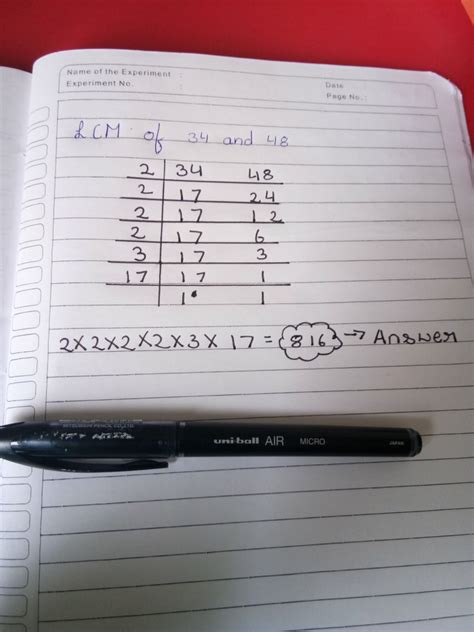 Name of the Experiment :
Experiment No. :
Date
Page No. :
LCM of 34 and 48
2 34 48
2 17 24
2 17 12
2 17 6
3 17 3
17 17 1
1 1
2×2×2×2×3×17 = 816 → Answer
MITSUBISHI PENCIL CO.,LTD.
uni-ball AIR MICRO JAPAN